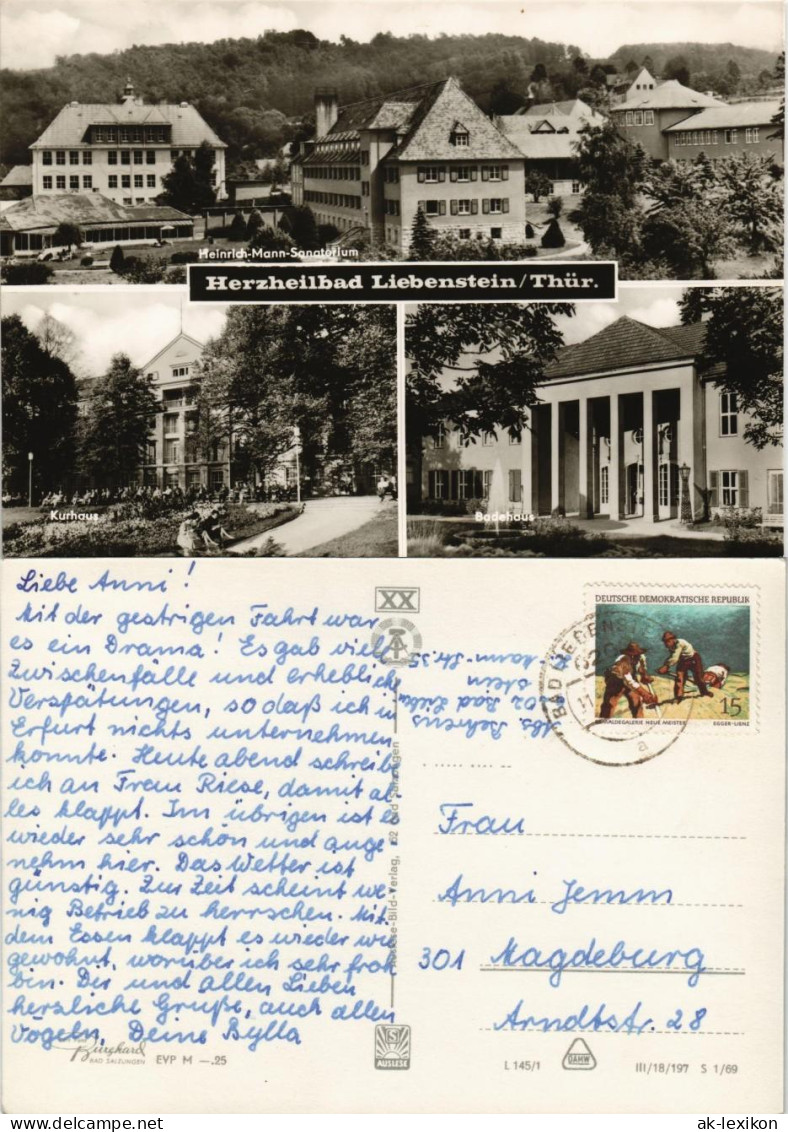 Heinrich-Mann-Sanatorium
Herzheilbad Liebenstein/Thür.
Kurhaus
Badehaus
Liebe Anni!
Mit der gestrigen Fahrt war
es ein Drama! Es gab viele
Zwischenfälle und erhebliche
Verspätungen, so daß ich in
Erfurt nichts unternehmen
konnte. Heute abend schreibe
ich an Frau Riese, damit al-
les klappt. Im übrigen ist es
wieder sehr schön und ange
nehm hier. Das Wetter ist
günstig. Zur Zeit scheint we
nig Betrieb zu herrschen. Mit
dem Essen klappt es wieder wie
gewohnt, worüber ich sehr froh
bin. Dir und allen Lieben
herzliche Grüße, auch allen
Vögeln, Deine Bylla
Burghard
BAD SALZUNGEN
EVP M —.25
XX
Auslese-Bild-Verlag, 62 Bad Salzungen
AUSLESE
Behrens
Bad
stein
DEUTSCHE DEMOKRATISCHE REPUBLIK
15
GEMÄLDEGALERIE NEUE MEISTER
EGGER-LIENZ
BAD
a
Frau
Anni Jemm
301 Magdeburg
Arndtstr. 28
L 145/1
III/18/197 S 1/69
ak-lexikon